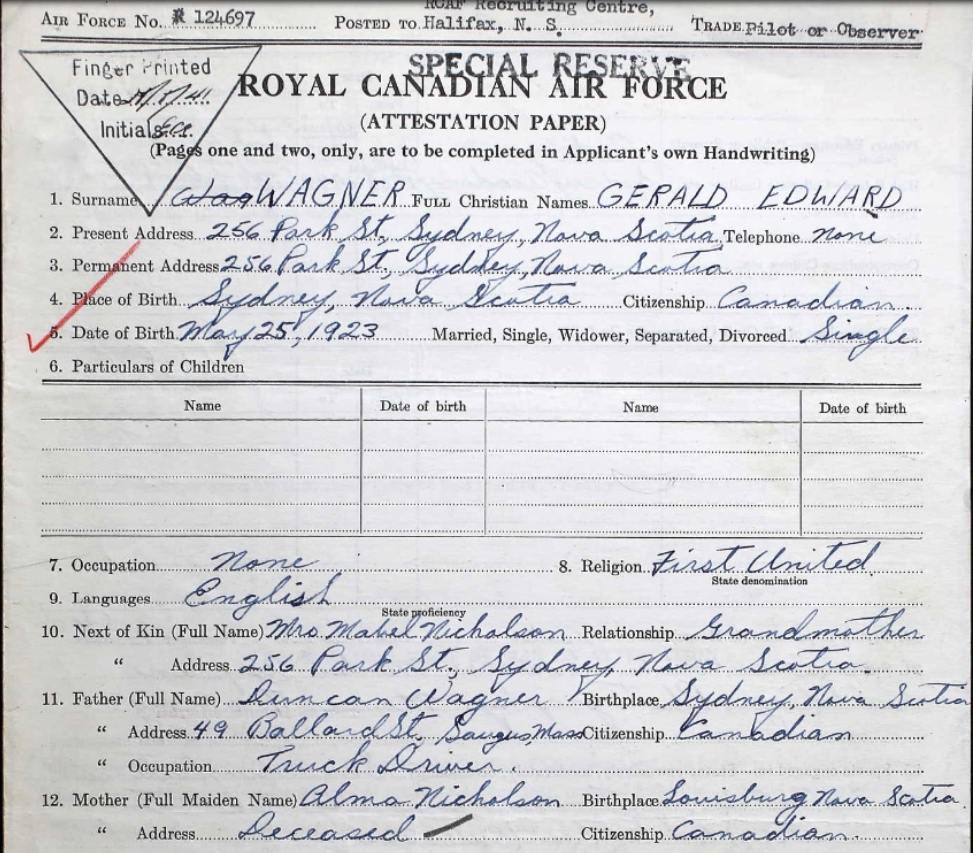 RCAF Recruiting Centre,
AIR FORCE No. R 124697 POSTED TO Halifax, N. S. TRADE Pilot or Observer
SPECIAL RESERVE
Finger Printed
Date
Initials
ROYAL CANADIAN AIR FORCE
(ATTESTATION PAPER)
(Pages one and two, only, are to be completed in Applicant's own Handwriting)
1. Surname Wag WAGNER FULL Christian Names GERALD EDWARD
2. Present Address 256 Park St., Sydney, Nova Scotia Telephone none
3. Permanent Address 256 Park St., Sydney, Nova Scotia
4. Place of Birth Sydney, Nova Scotia Citizenship Canadian
5. Date of Birth May 25, 1923 Married, Single, Widower, Separated, Divorced Single
6. Particulars of Children
Name Date of birth Name Date of birth
7. Occupation None 8. Religion First United
State denomination
9. Languages English
State proficiency
10. Next of Kin (Full Name) Mrs. Mabel Nicholson Relationship Grandmother
" Address 256 Park St., Sydney, Nova Scotia
11. Father (Full Name) Duncan Wagner Birthplace Sydney, Nova Scotia
" Address 49 Ballard St., Saugus, Mass Citizenship Canadian
" Occupation Truck Driver.
12. Mother (Full Maiden Name) Alma Nicholson Birthplace Louisburg Nova Scotia
" Address Deceased Citizenship Canadian.